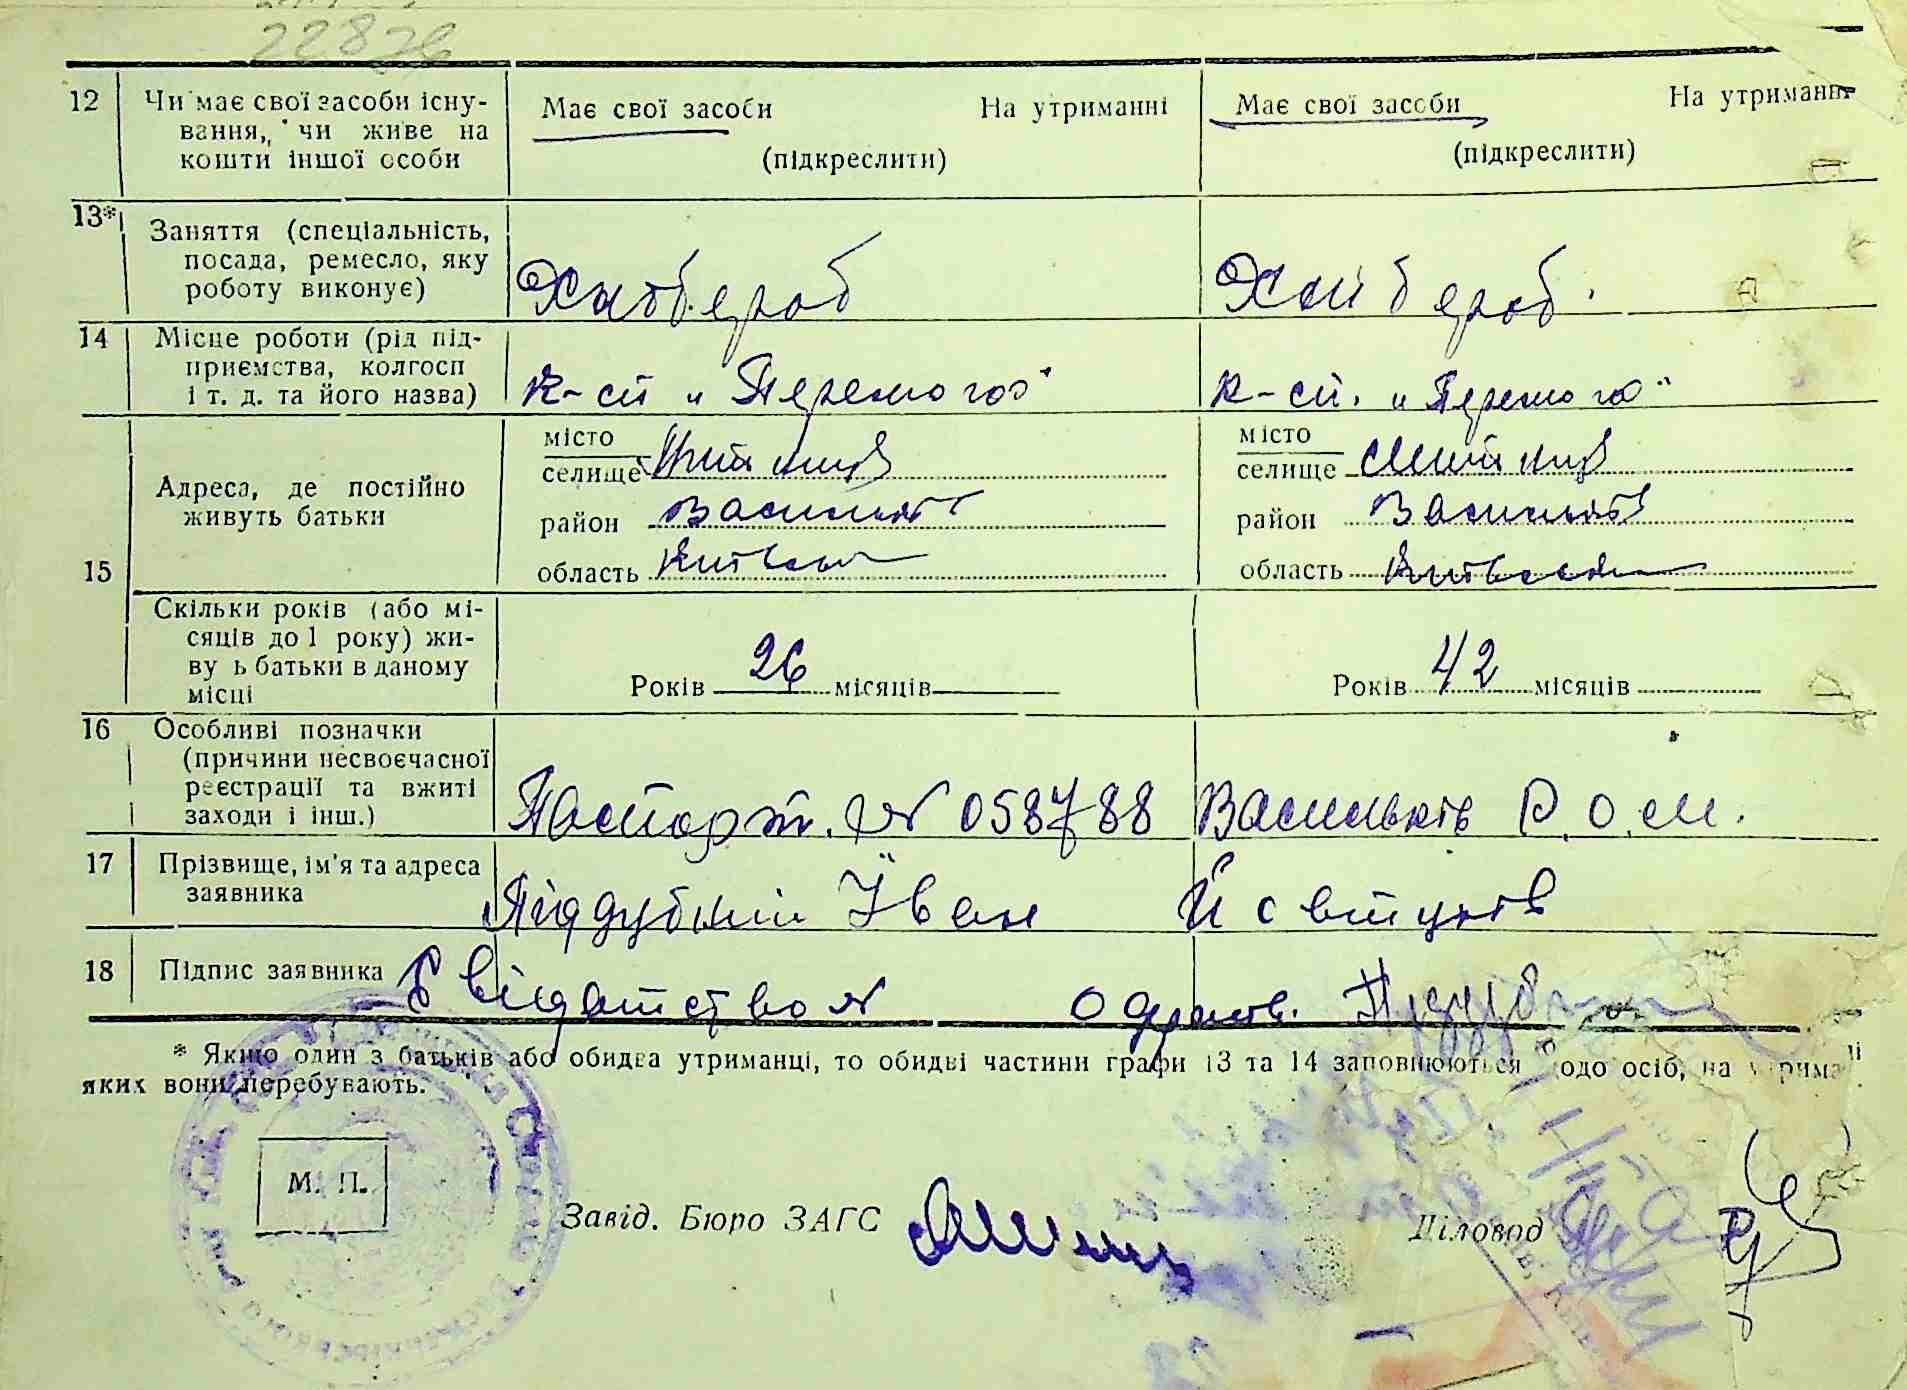 22826
12 Чи має свої засоби існу-
вання, чи живе на
кошти іншої особи
Має свої засоби На утриманні
(підкреслити)
Має свої засоби На утриманні
(підкреслити)
13* Заняття (спеціальність,
посада, ремесло, яку
роботу виконує)
Хлібороб
Хлібороб.
14 Місце роботи (рід під-
приємства, колгосп
і т. д. та його назва)
К-сп „Перемога"
К-сп. „Перемога"
15 Адреса, де постійно
живуть батьки
місто
селище
район Васильків
область Київська
місто
селище
район Васильків
область Київська
Скільки років (або мі-
сяців до 1 року) жи-
ву ь батьки в даному
місці
Років 26 місяців
Років 42 місяців
16 Особливі позначки
(причини несвоєчасної
реєстрації та вжиті
заходи і інш.)
Паспорт. № 058788 Васильків Р.О.М.
17 Прізвище, ім'я та адреса
заявника
Піддубний Іван
18 Підпис заявника
Свідотство №
* Якщо один з батьків або обидва утриманці, то обидві частини графи 13 та 14 заповнюються щодо осіб, на утрима
яких вони перебувають.
М. П.
Завід. Бюро ЗАГС
Діловод